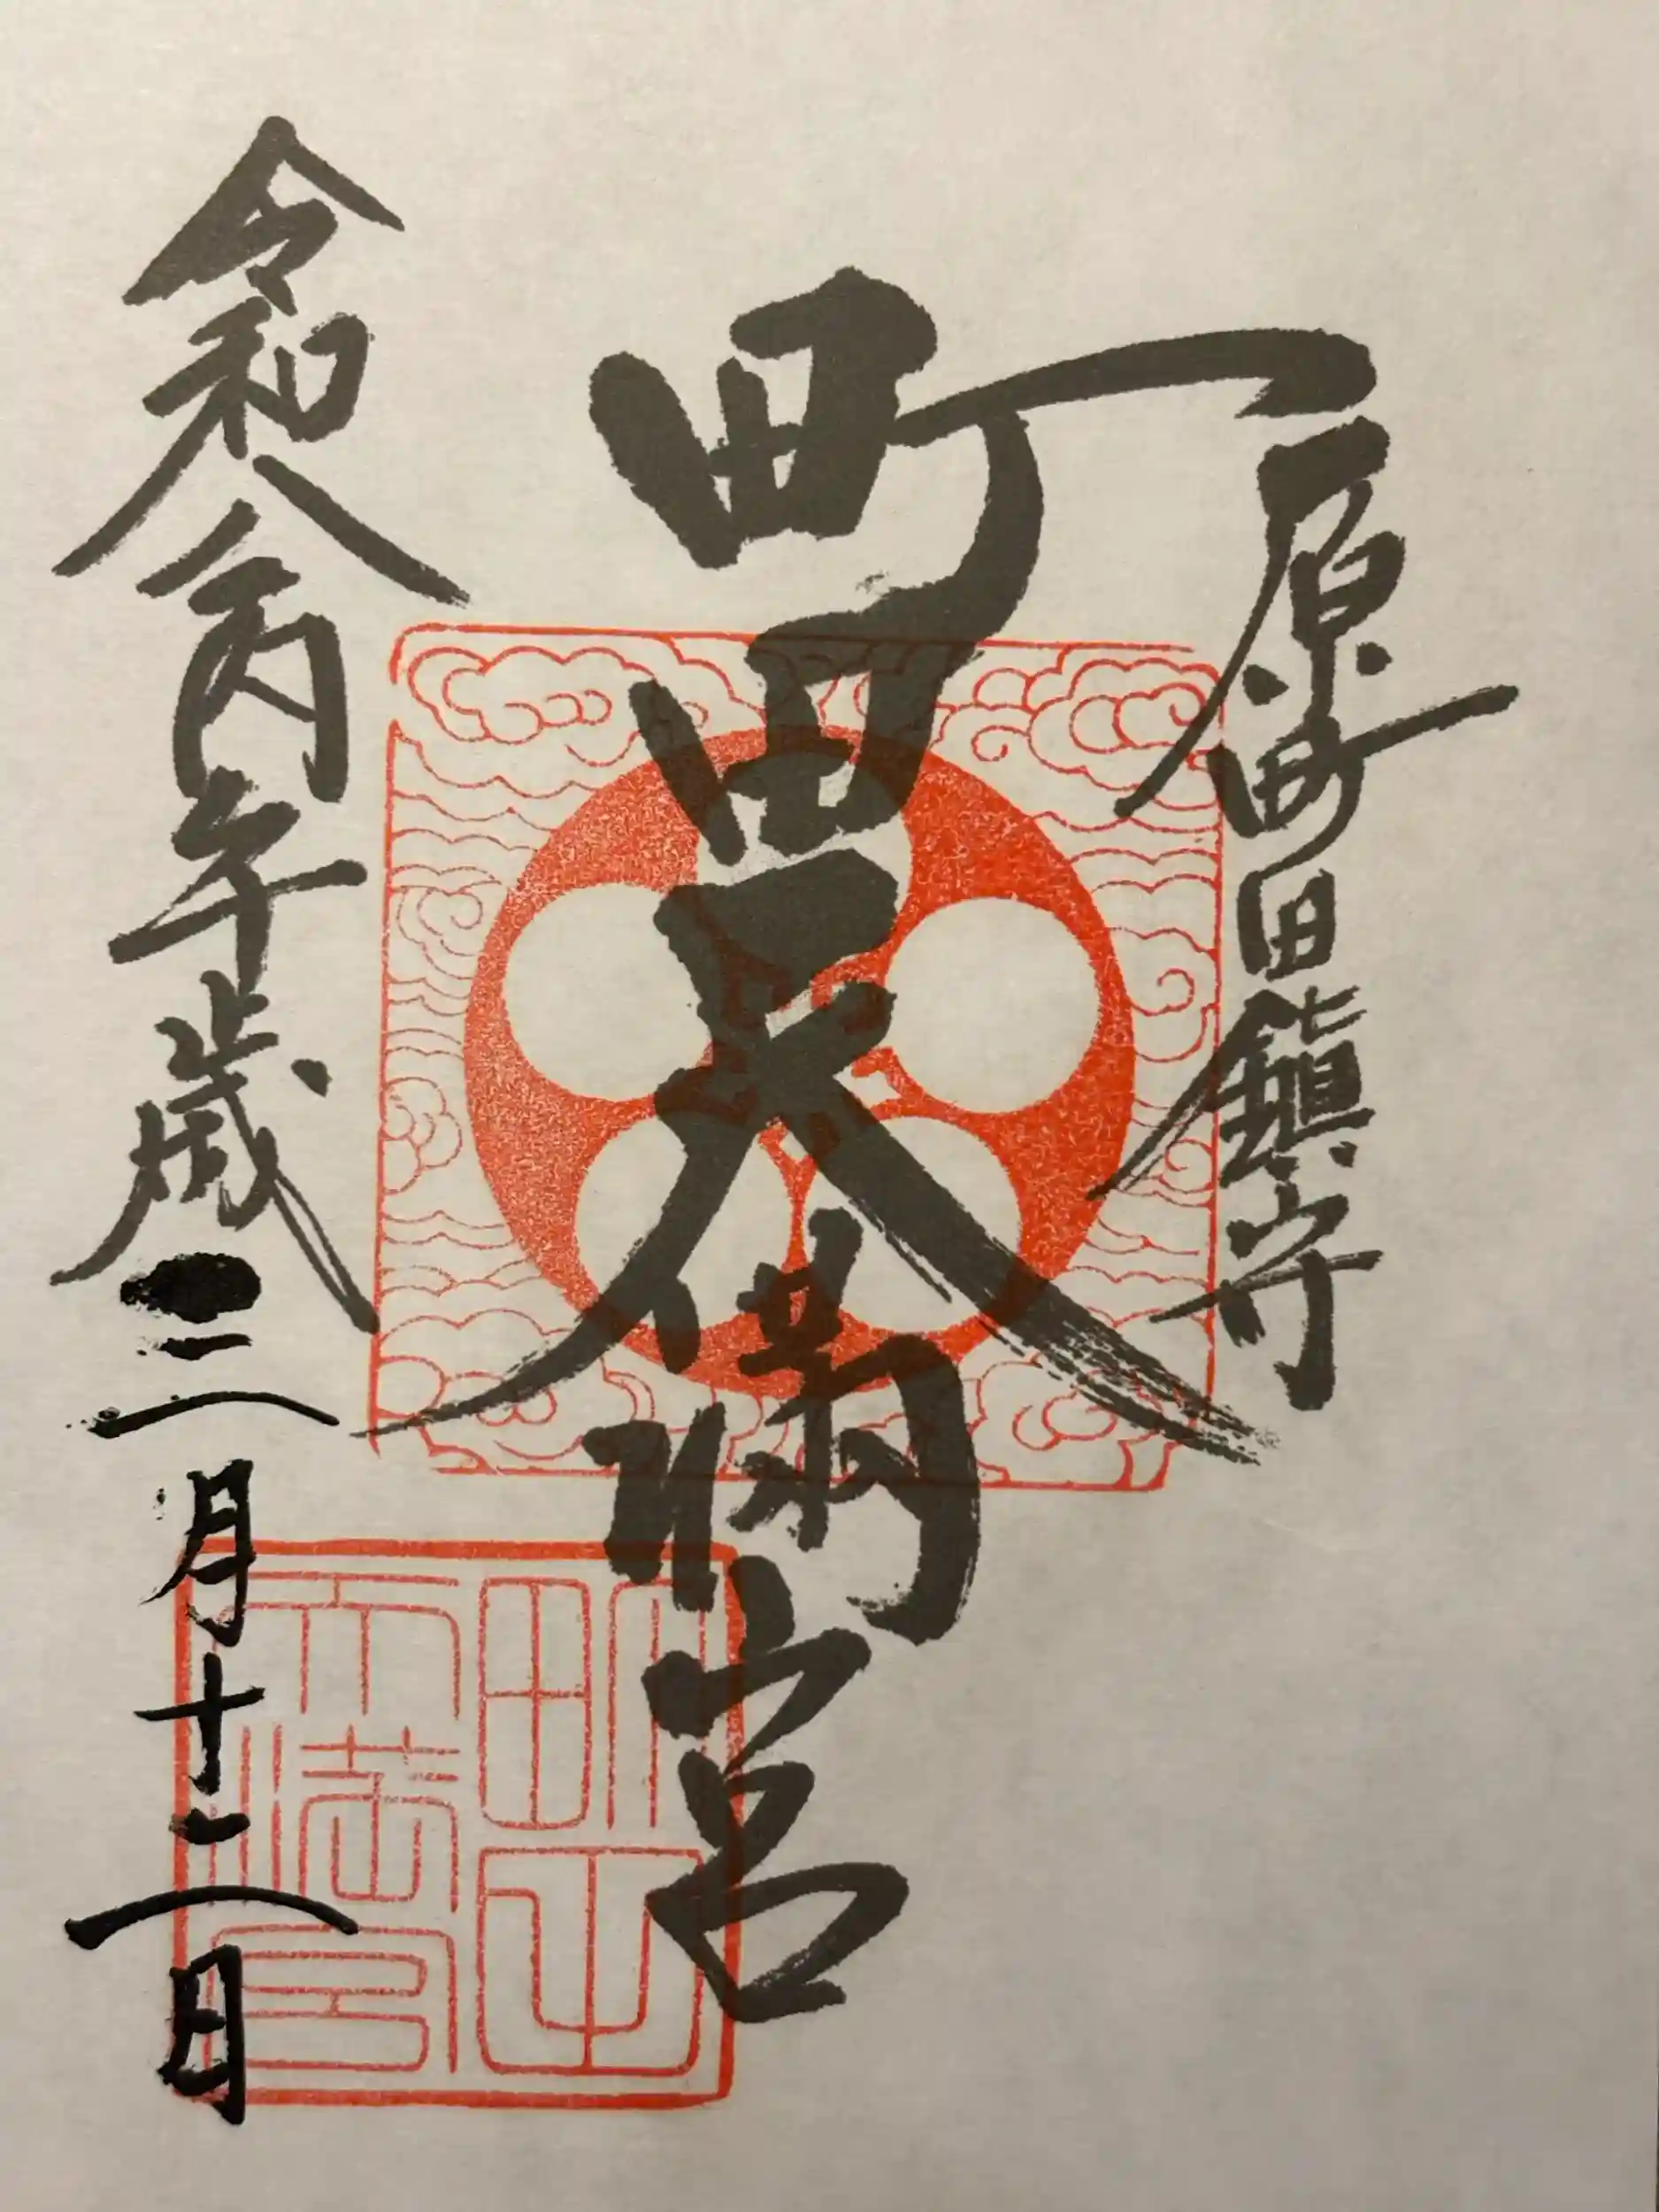 原町田鎮守
町田天満宮
令和八丙午歳三月十二日
町田
天満宮